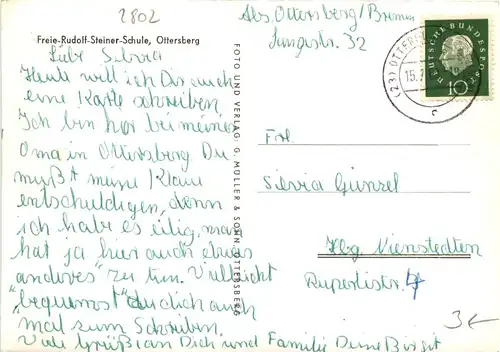 2802
Abs. Ottersberg/Bremen
Langestr. 32
Freie-Rudolf-Steiner-Schule, Ottersberg
Liebe Silvia
Heute will ich Dir auch
eine Karte schreiben.
Ich bin hier bei meiner
Oma in Ottersberg. Du
mußt meine Klaue
entschuldigen, denn
ich habe es eilig, man
hat ja hier auch etwas
anderes" zu tun. Vielleicht
"bequemst" du dich auch
mal zum Schreiben.
Viele Grüße an Dich und Familie Deine Birgit
FOTO UND VERLAG: G. MÜLLER & SOHN, OTTERSBERG
DEUTSCHE BUNDESPOST
10
(23) OTTERSB
15.7
c
Frl.
Silvia Günzel
Hbg Nienstedten
Rupertistr.
3€